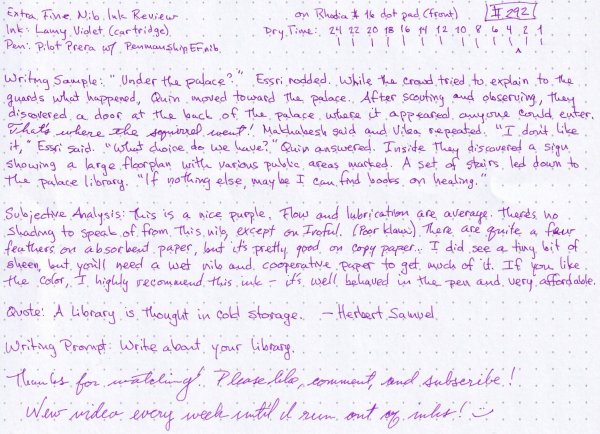 Extra Fine Nib Ink Review on Rhodia #16 dot pad (front) #292
Ink: Lamy Violet (cartridge) Dry Time: 24 22 20 18 16 14 12 10 8 6 4 2 1
Pen: Pilot Prera w/ Penmanship EF nib
Writing Sample: "Under the palace?" Essri nodded. While the crowd tried to explain to the
guards what happened, Quin moved toward the palace. After scouting and observing, they
discovered a door at the back of the palace where it appeared anyone could enter.
That's where the squirrel went! Makhabesh said and Vilea repeated. "I don't like
it," Essri said. "What choice do we have?" Quin answered. Inside they discovered a sign
showing a large floorplan with various public areas marked. A set of stairs led down to
the palace library. "If nothing else, maybe I can find books on healing."
Subjective Analysis: This is a nice purple. Flow and lubrication are average. There's no
shading to speak of from this nib, except on Iroful. (Poor klaw.) There are quite a few
feathers on absorbent paper, but it's pretty good on copy paper. I did see a tiny bit of
sheen, but you'll need a wet nib and cooperative paper to get much of it. If you like
the color, I highly recommend this ink - it's well behaved in the pen and very affordable.
Quote: A library is thought in cold storage. - Herbert Samuel
Writing Prompt: Write about your library.
Thanks for watching! Please like, comment, and subscribe!
New video every week until I run out of inks! :)